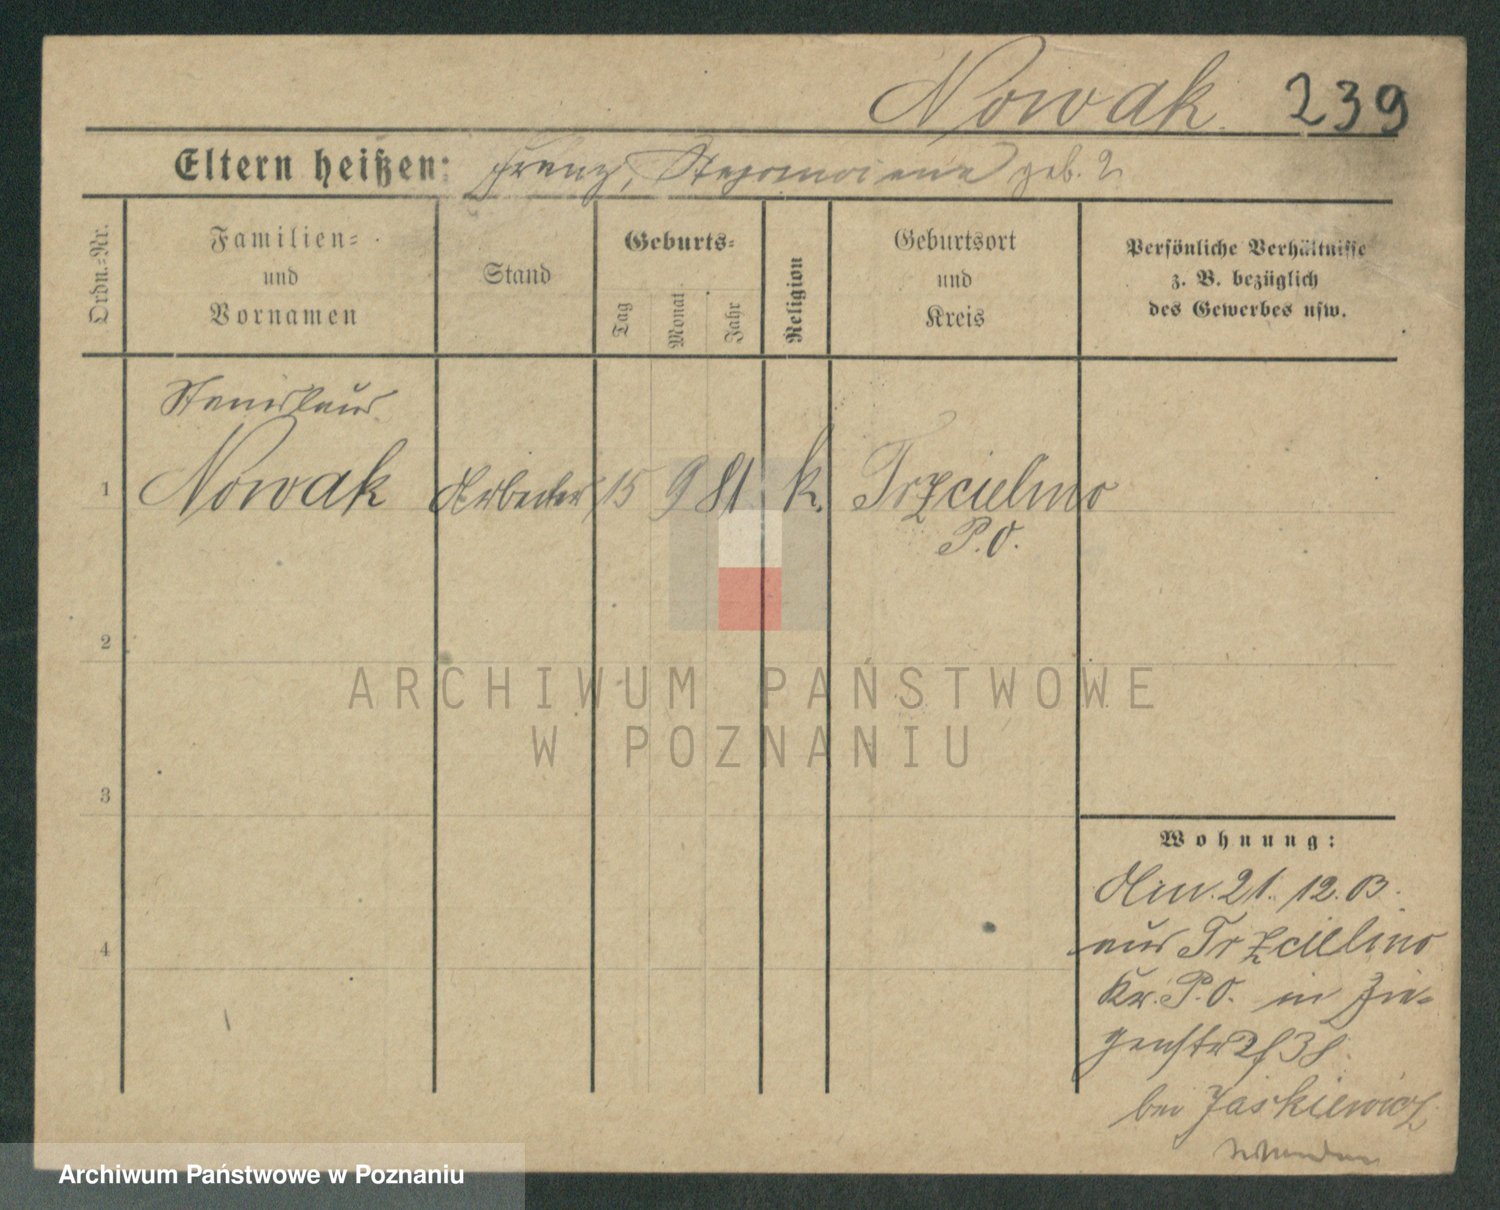 Nowak 239
Eltern heißen: Franz, geb.
Ordn.=Nr.
Familien= und Vornamen
Stand
Geburts=
Tag
Monat
Jahr
Religion
Geburtsort und Kreis
Persönliche Verhältnisse
z. B. bezüglich
des Gewerbes usw.
Stanislaus
1 Nowak Arbeiter 15 9 81 k. Trzcielino
P.O.
2
3
4
Wohnung:
21. 12. 03.
aus Trzcielino
Kr. P.O. in Zie-
genstr
bei Jaskiewicz
ARCHIWUM PAŃSTWOWE
W POZNANIU
Archiwum Państwowe w Poznaniu